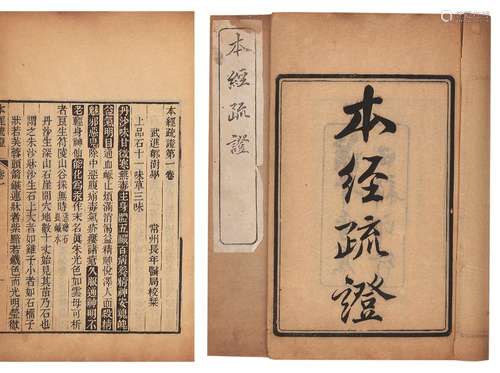 本經疏證第一卷
武進鄒澍學
常州長年醫局校槧
上品石十一味草三味
丹沙味甘微寒無毒主身體五臟百病養精神安魂魄
益氣明目通血脈止煩滿消渴益精神悅澤人面殺精
魅邪惡鬼除中惡腹痛毒氣疥瘻諸瘡久服通神明不
老輕身神仙能化為汞作末名真朱光色如雲母可析
者良生符陵山谷採無時
丹沙生深山石崖間穴地數十丈始見其苗乃石也
謂之朱沙牀沙生石上大者如雞子小者如石榴子
狀若芙蓉頭箭鏃連牀者紫黯若鐵色而光明瑩徹
本經疏證
本經疏證
本經疏證